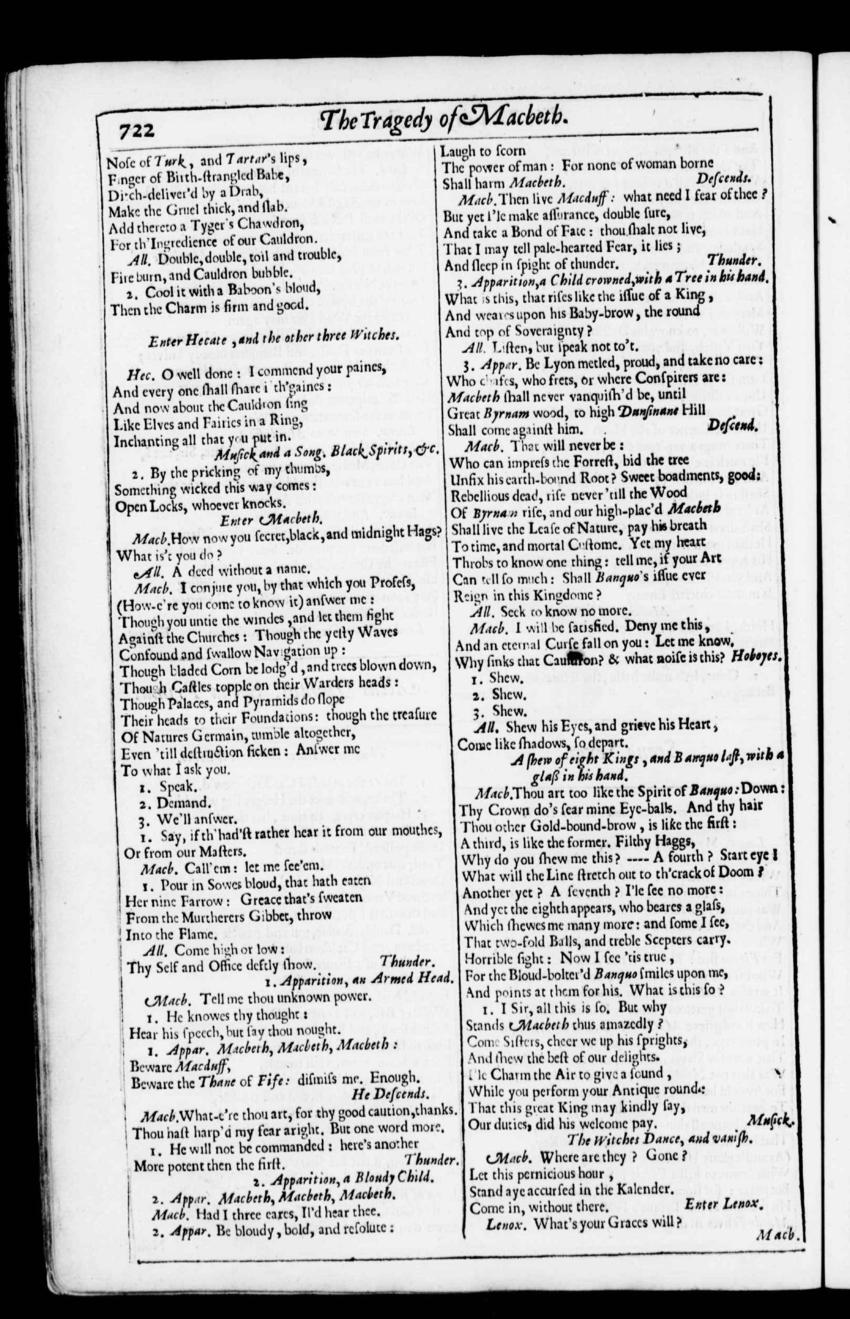 722
The Tragedy of Macbeth.
Nose of Turk, and Tartar's lips,
Finger of Birth-strangled Babe,
Ditch-deliver'd by a Drab,
Make the Gruel thick, and slab.
Add thereto a Tyger's Chawdron,
For th'Ingredience of our Cauldron.
All. Double, double, toil and trouble,
Fire burn, and Cauldron bubble.
2. Cool it with a Baboon's bloud,
Then the Charm is firm and good.
Enter Hecate, and the other three Witches.
Hec. O well done: I commend your paines,
And every one shall share i'th'gaines:
And now about the Cauldron sing
Like Elves and Fairies in a Ring,
Inchanting all that you put in.
Musick and a Song. Black Spirits, &c.
2. By the pricking of my thumbs,
Something wicked this way comes:
Open Locks, whoever knocks.
Enter Macbeth.
Macb. How now you secret, black, and midnight Hags?
What is't you do?
All. A deed without a name.
Macb. I conjure you, by that which you Profess,
(How-e're you come to know it) answer me:
Though you untie the windes, and let them fight
Against the Churches: Though the yesty Waves
Confound and swallow Navigation up:
Though bladed Corn be lodg'd, and trees blown down,
Though Castles topple on their Warders heads:
Though Palaces, and Pyramids do slope
Their heads to their Foundations: though the treasure
Of Natures Germain, tumble altogether,
Even 'till destruction sicken: Answer me
To what I ask you.
1. Speak.
2. Demand.
3. We'll answer.
1. Say, if th'had'st rather hear it from our mouthes,
Or from our Masters.
Macb. Call'em: let me see'em.
1. Pour in Sowes bloud, that hath eaten
Her nine Farrow: Greace that's sweaten
From the Murtherers Gibbet, throw
Into the Flame.
All. Come high or low:
Thy Self and Office deftly show. Thunder.
1. Apparition, an Armed Head.
Macb. Tell me thou unknown power.
1. He knowes thy thought:
Hear his speech, but say thou nought.
1. Appar. Macbeth, Macbeth, Macbeth:
Beware Macduff,
Beware the Thane of Fife: dismiss me. Enough.
He Descends.
Macb. What-e're thou art, for thy good caution, thanks.
Thou hast harp'd my fear aright. But one word more.
1. He will not be commanded: here's another
More potent then the first. Thunder.
2. Apparition, a Bloudy Child.
2. Appar. Macbeth, Macbeth, Macbeth.
Macb. Had I three eares, Il'd hear thee.
2. Appar. Be bloudy, bold, and resolute:
Laugh to scorn
The power of man: For none of woman borne
Shall harm Macbeth. Descends.
Macb. Then live Macduff: what need I fear of thee?
But yet I'le make assurance, double sure,
And take a Bond of Fate: thou shalt not live,
That I may tell pale-hearted Fear, it lies;
And sleep in spight of thunder. Thunder.
3. Apparition, a Child crowned, with a Tree in his hand.
What is this, that rises like the issue of a King,
And weares upon his Baby-brow, the round
And top of Soveraignty?
All. Listen, but speak not to't.
3. Appar. Be Lyon metled, proud, and take no care:
Who chafes, who frets, or where Conspirers are:
Macbeth shall never vanquish'd be, until
Great Byrnam wood, to high Dunsinane Hill
Shall come against him. Descend.
Macb. That will never be:
Who can impress the Forrest, bid the tree
Unfix his earth-bound Root? Sweet boadments, good:
Rebellious dead, rise never 'till the Wood
Of Byrnan rise, and our high-plac'd Macbeth
Shall live the Lease of Nature, pay his breath
To time, and mortal Custome. Yet my heart
Throbs to know one thing: tell me, if your Art
Can tell so much: Shall Banquo's issue ever
Reign in this Kingdome?
All. Seek to know no more.
Macb. I will be satisfied. Deny me this,
And an eternal Curse fall on you: Let me know.
Why sinks that Cauldron? & what noise is this? Hoboyes.
1. Shew.
2. Shew.
3. Shew.
All. Shew his Eyes, and grieve his Heart,
Come like shadows, so depart.
A shew of eight Kings, and Banquo last, with a
glass in his hand.
Macb. Thou art too like the Spirit of Banquo: Down:
Thy Crown do's sear mine Eye-balls. And thy hair
Thou other Gold-bound-brow, is like the first:
A third, is like the former. Filthy Haggs,
Why do you shew me this? ---- A fourth? Start eye!
What will the Line stretch out to th'crack of Doom?
Another yet? A seventh? I'le see no more:
And yet the eighth appears, who beares a glass,
Which shewes me many more: and some I see,
That two-fold Balls, and treble Scepters carry.
Horrible sight: Now I see 'tis true,
For the Bloud-bolter'd Banquo smiles upon me,
And points at them for his. What is this so?
1. I Sir, all this is so. But why
Stands Macbeth thus amazedly?
Come Sisters, cheer we up his sprights,
And shew the best of our delights.
I'le Charm the Air to give a sound,
While you perform your Antique round:
That this great King may kindly say,
Our duties, did his welcome pay. Musick.
The Witches Dance, and vanish.
Macb. Where are they? Gone?
Let this pernicious hour,
Stand aye accursed in the Kalender.
Come in, without there. Enter Lenox.
Lenox. What's your Graces will?
Macb.